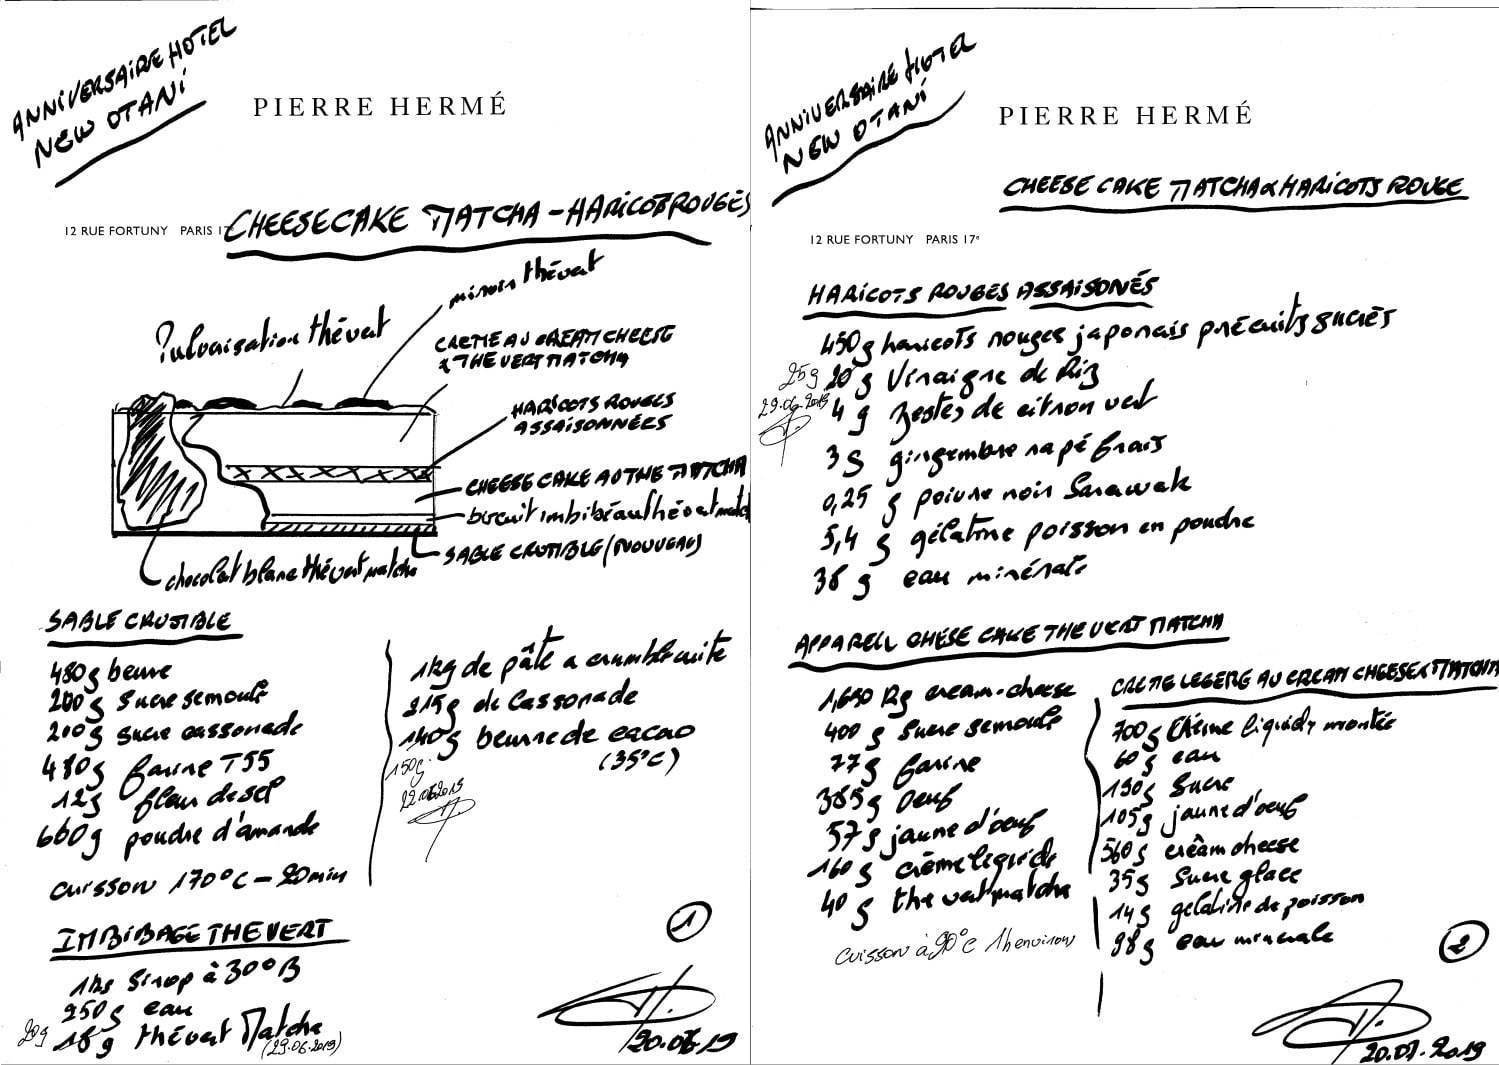 ANNIVERSAIRE HOTEL
NEW OTANI
PIERRE HERMÉ
12 RUE FORTUNY PARIS 17
CHEESECAKE MATCHA - HARICOTS ROUGES
miroir thé vert
Pulvérisation thé vert
CREME AU CREAM CHEESE
& THE VERT MATCHA
HARICOTS ROUGES
ASSAISONNÉES
CHEESE CAKE AU THE MATCHA
biscuit imbibé au thé vert matcha
SABLE CRUMBLE (NOUVEAU)
chocolat blanc thé vert matcha
SABLE CRUMBLE
480g beurre
200g sucre semoule
200g sucre cassonade
480g farine T55
12g fleur de sel
660g poudre d'amande
cuisson 170°C - 20min
1kg de pâte a crumble cuite
215g de cassonade
140g beurre de cacao
(35°C)
150g
22.06.2019
IMBIBAGE THE VERT
1kg sirop à 30°B
250g eau
20g 18g thé vert Matcha
(29.06.2019)
1
20.06.19
ANNIVERSAIRE HOTEL
NEW OTANI
PIERRE HERMÉ
CHEESE CAKE MATCHA & HARICOTS ROUGE
12 RUE FORTUNY PARIS 17e
HARICOTS ROUGES ASSAISONÉS
450g haricots rouges japonais précuits sucrés
25g 20g Vinaigre de Riz
29.06.2019 4g zestes de citron vert
3g gingembre rapé frais
0,25 g poivre noir Sarawak
5,4 g gélatine poisson en poudre
38 g eau minérale
APPAREIL CHESE CAKE THE VERT MATCHA
1,650 Kg cream-cheese
400 g sucre semoule
77g farine
385g oeuf
57g jaune d'oeuf
160g crème liquide
40 g the vert matcha
cuisson à 90°C 1h environ
CREME LEGERE AU CREAM CHEESE & MATCHA
700g Crème liquide montée
60g eau
190g sucre
105g jaune d'oeuf
560g crêam cheese
35g sucre glace
14g gelatine de poisson
98g eau minerale
2
20.07.2019